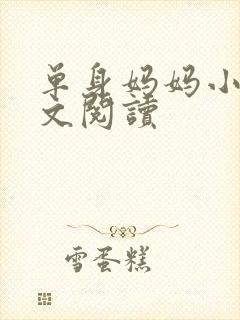 单身妈妈小
文閱讀
雪蛋糕